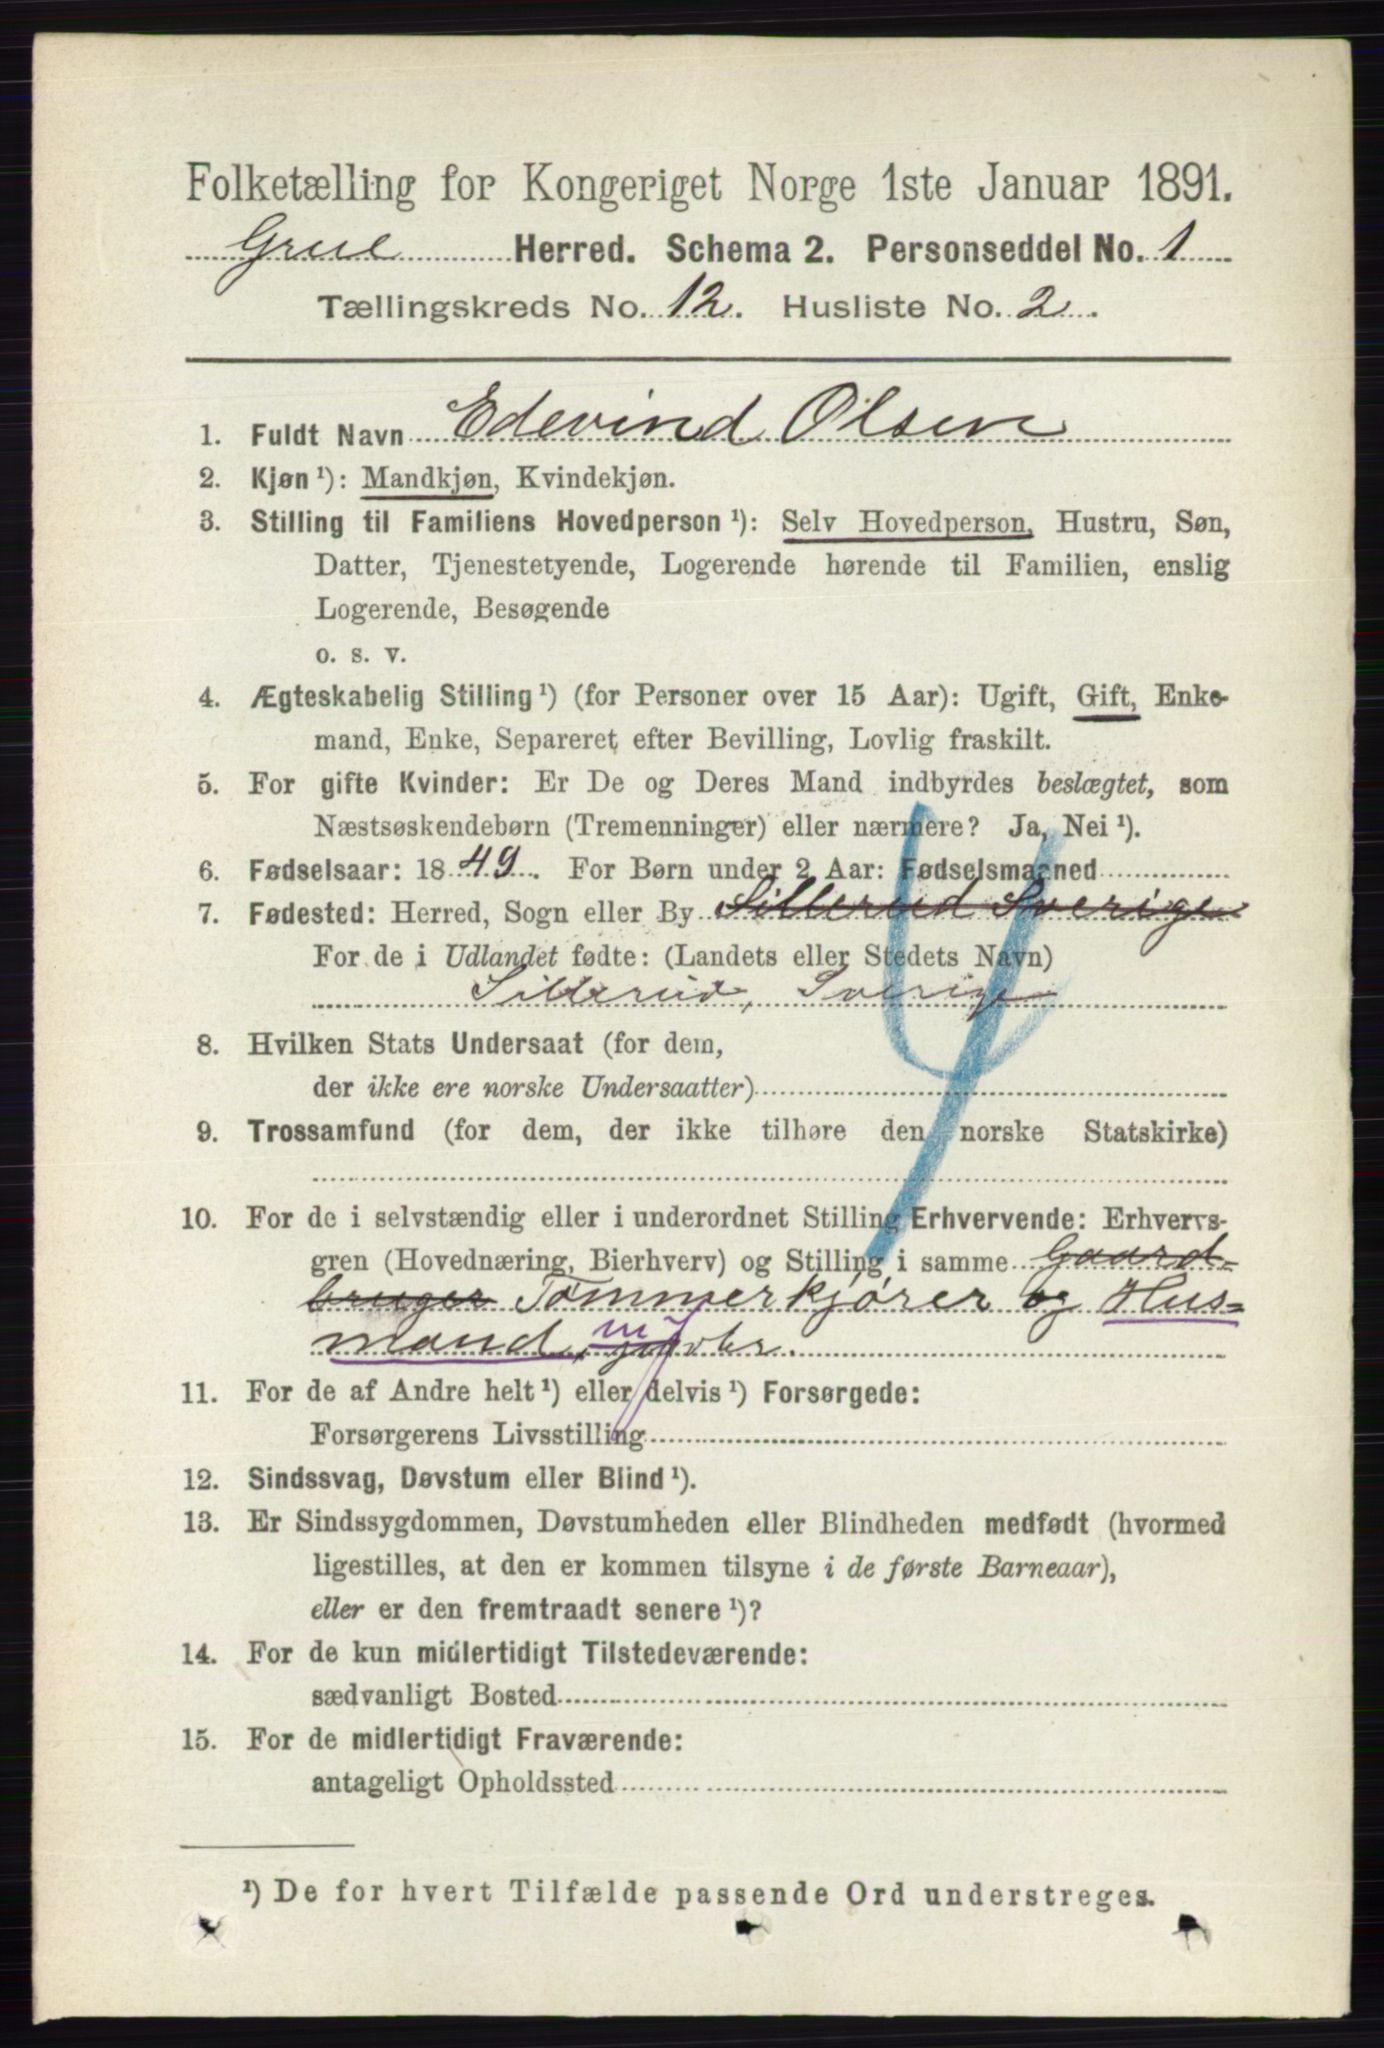 Folketælling for Kongeriget Norge 1ste Januar 1891.
Grue Herred. Schema 2. Personseddel No. 1
Tællingskreds No. 12. Husliste No. 2.
1. Fuldt Navn Edevind Olsen
2. Kjøn ¹): Mandkjøn, Kvindekjøn.
3. Stilling til Familiens Hovedperson ¹): Selv Hovedperson, Hustru, Søn,
Datter, Tjenestetyende, Logerende hørende til Familien, enslig
Logerende, Besøgende
o. s. v.
4. Ægteskabelig Stilling ¹) (for Personer over 15 Aar): Ugift, Gift, Enke-
mand, Enke, Separeret efter Bevilling, Lovlig fraskilt.
5. For gifte Kvinder: Er De og Deres Mand indbyrdes beslægtet, som
Næstsøskendebørn (Tremenninger) eller nærmere? Ja, Nei ¹).
6. Fødselsaar: 1849. For Børn under 2 Aar: Fødselsmaaned
7. Fødested: Herred, Sogn eller By Sillerud Sverige
For de i Udlandet fødte: (Landets eller Stedets Navn)
Sillerud, Sverige
8. Hvilken Stats Undersaat (for dem,
der ikke ere norske Undersaatter)
9. Trossamfund (for dem, der ikke tilhøre den norske Statskirke)
10. For de i selvstændig eller i underordnet Stilling Erhvervende: Erhvervs-
gren (Hovednæring, Bierhverv) og Stilling i samme Gaard-
bruger Tømmerkjører og Hus=
mand, m
11. For de af Andre helt ¹) eller delvis ¹) Forsørgede:
Forsørgerens Livsstilling
12. Sindssvag, Døvstum eller Blind ¹).
13. Er Sindssygdommen, Døvstumheden eller Blindheden medfødt (hvormed
ligestilles, at den er kommen tilsyne i de første Barneaar),
eller er den fremtraadt senere ¹)?
14. For de kun midlertidigt Tilstedeværende:
sædvanligt Bosted
15. For de midlertidigt Fraværende:
antageligt Opholdssted
¹) De for hvert Tilfælde passende Ord understreges.